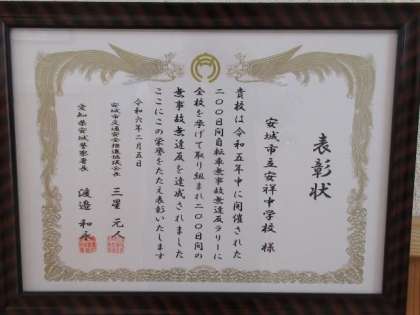 表彰状
安城市立安祥中学校 様
貴校は令和五年中に開催された
二〇〇日間自転車無事故無違反ラリーに
全校を挙げて取り組まれ二〇〇日間の
無事故無違反を達成されました
ここにこの栄誉をたたえ表彰いたします
令和六年二月五日
安城市交通安全推進協議会長 三星 元人
愛知県安城警察署長 渡邉 和永